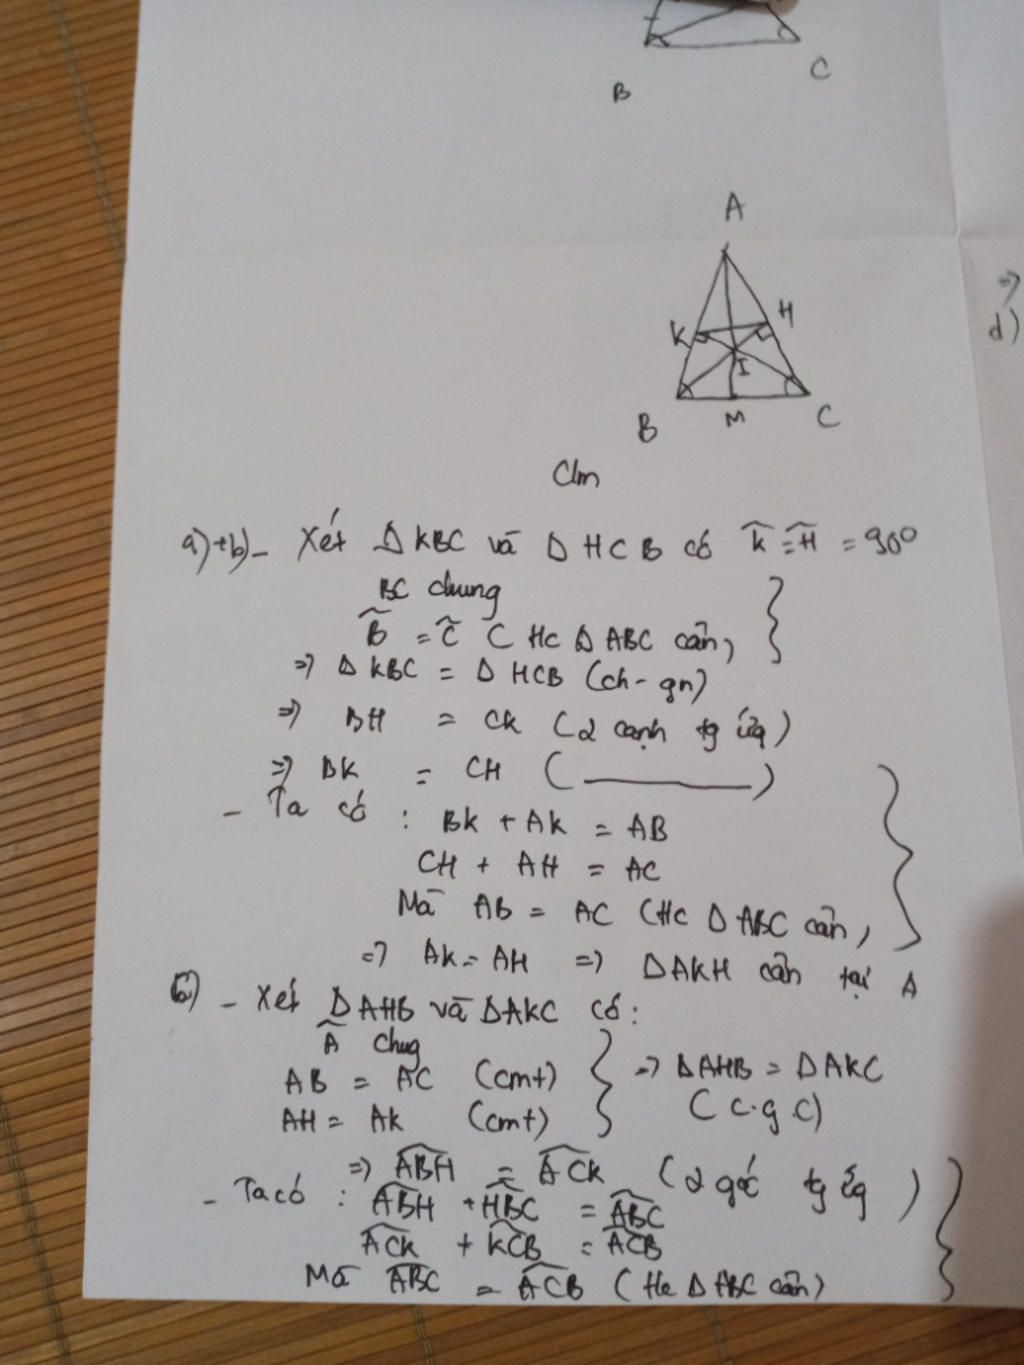 B
C
A
K
H
I
B
M
C
Clm
⇒
d)
a)+b)- Xét Δ KBC và Δ HCB có K̂ = Ĥ = 90°
BC chung
B̂ = Ĉ ( Hc Δ ABC cân)
⇒ Δ KBC = Δ HCB (ch - gn)
⇒ BH = CK (2 cạnh tg ứg)
⇒ BK = CH ( ______ )
- Ta có : BK + AK = AB
CH + AH = AC
Mà AB = AC (Hc Δ ABC cân)
⇒ AK = AH ⇒ ΔAKH cân tại A
c) - Xét ΔAHB và ΔAKC có:
Â chug
AB = AC (cmt)
⇒ ΔAHB = ΔAKC
AH = AK (cmt)
( c.g.c)
⇒ ABH = ACK (2 góc tg ứg )
- Ta có : ABH + HBC = ABC
ACK + KCB = ACB
Mà ABC = ACB (Hc Δ ABC cân)